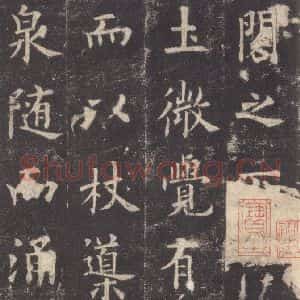 閣之
土微覺有
而以杖導
泉随而涌
Shufawang.CN